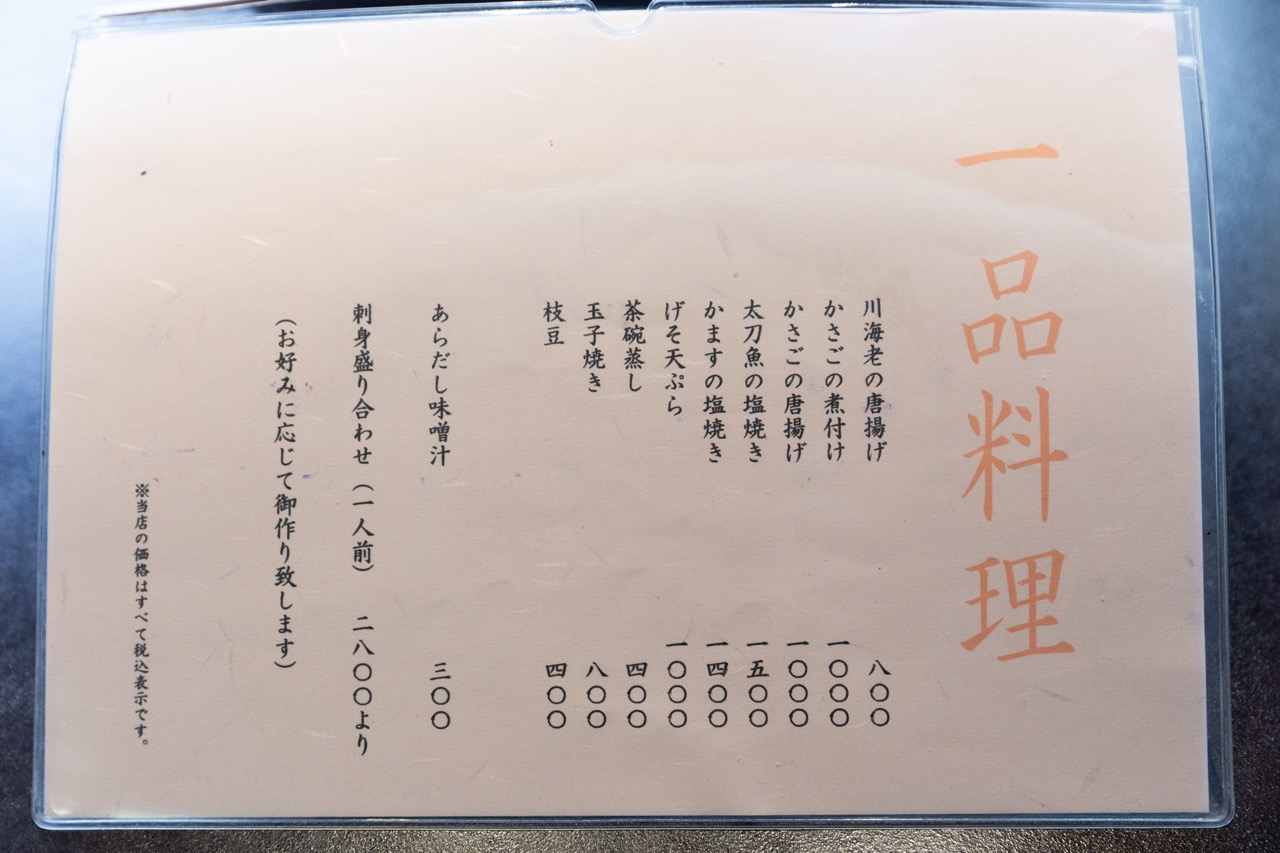 一品料理
川海老の唐揚げ 八〇〇
かさごの煮付け 一〇〇〇
かさごの唐揚げ 一〇〇〇
太刀魚の塩焼き 一五〇〇
かますの塩焼き 一四〇〇
げそ天ぷら 一〇〇〇
茶碗蒸し 四〇〇
玉子焼き 八〇〇
枝豆 四〇〇
あらだし味噌汁 三〇〇
刺身盛り合わせ（一人前） 二八〇〇より
（お好みに応じて御作り致します）
※当店の価格はすべて税込表示です。